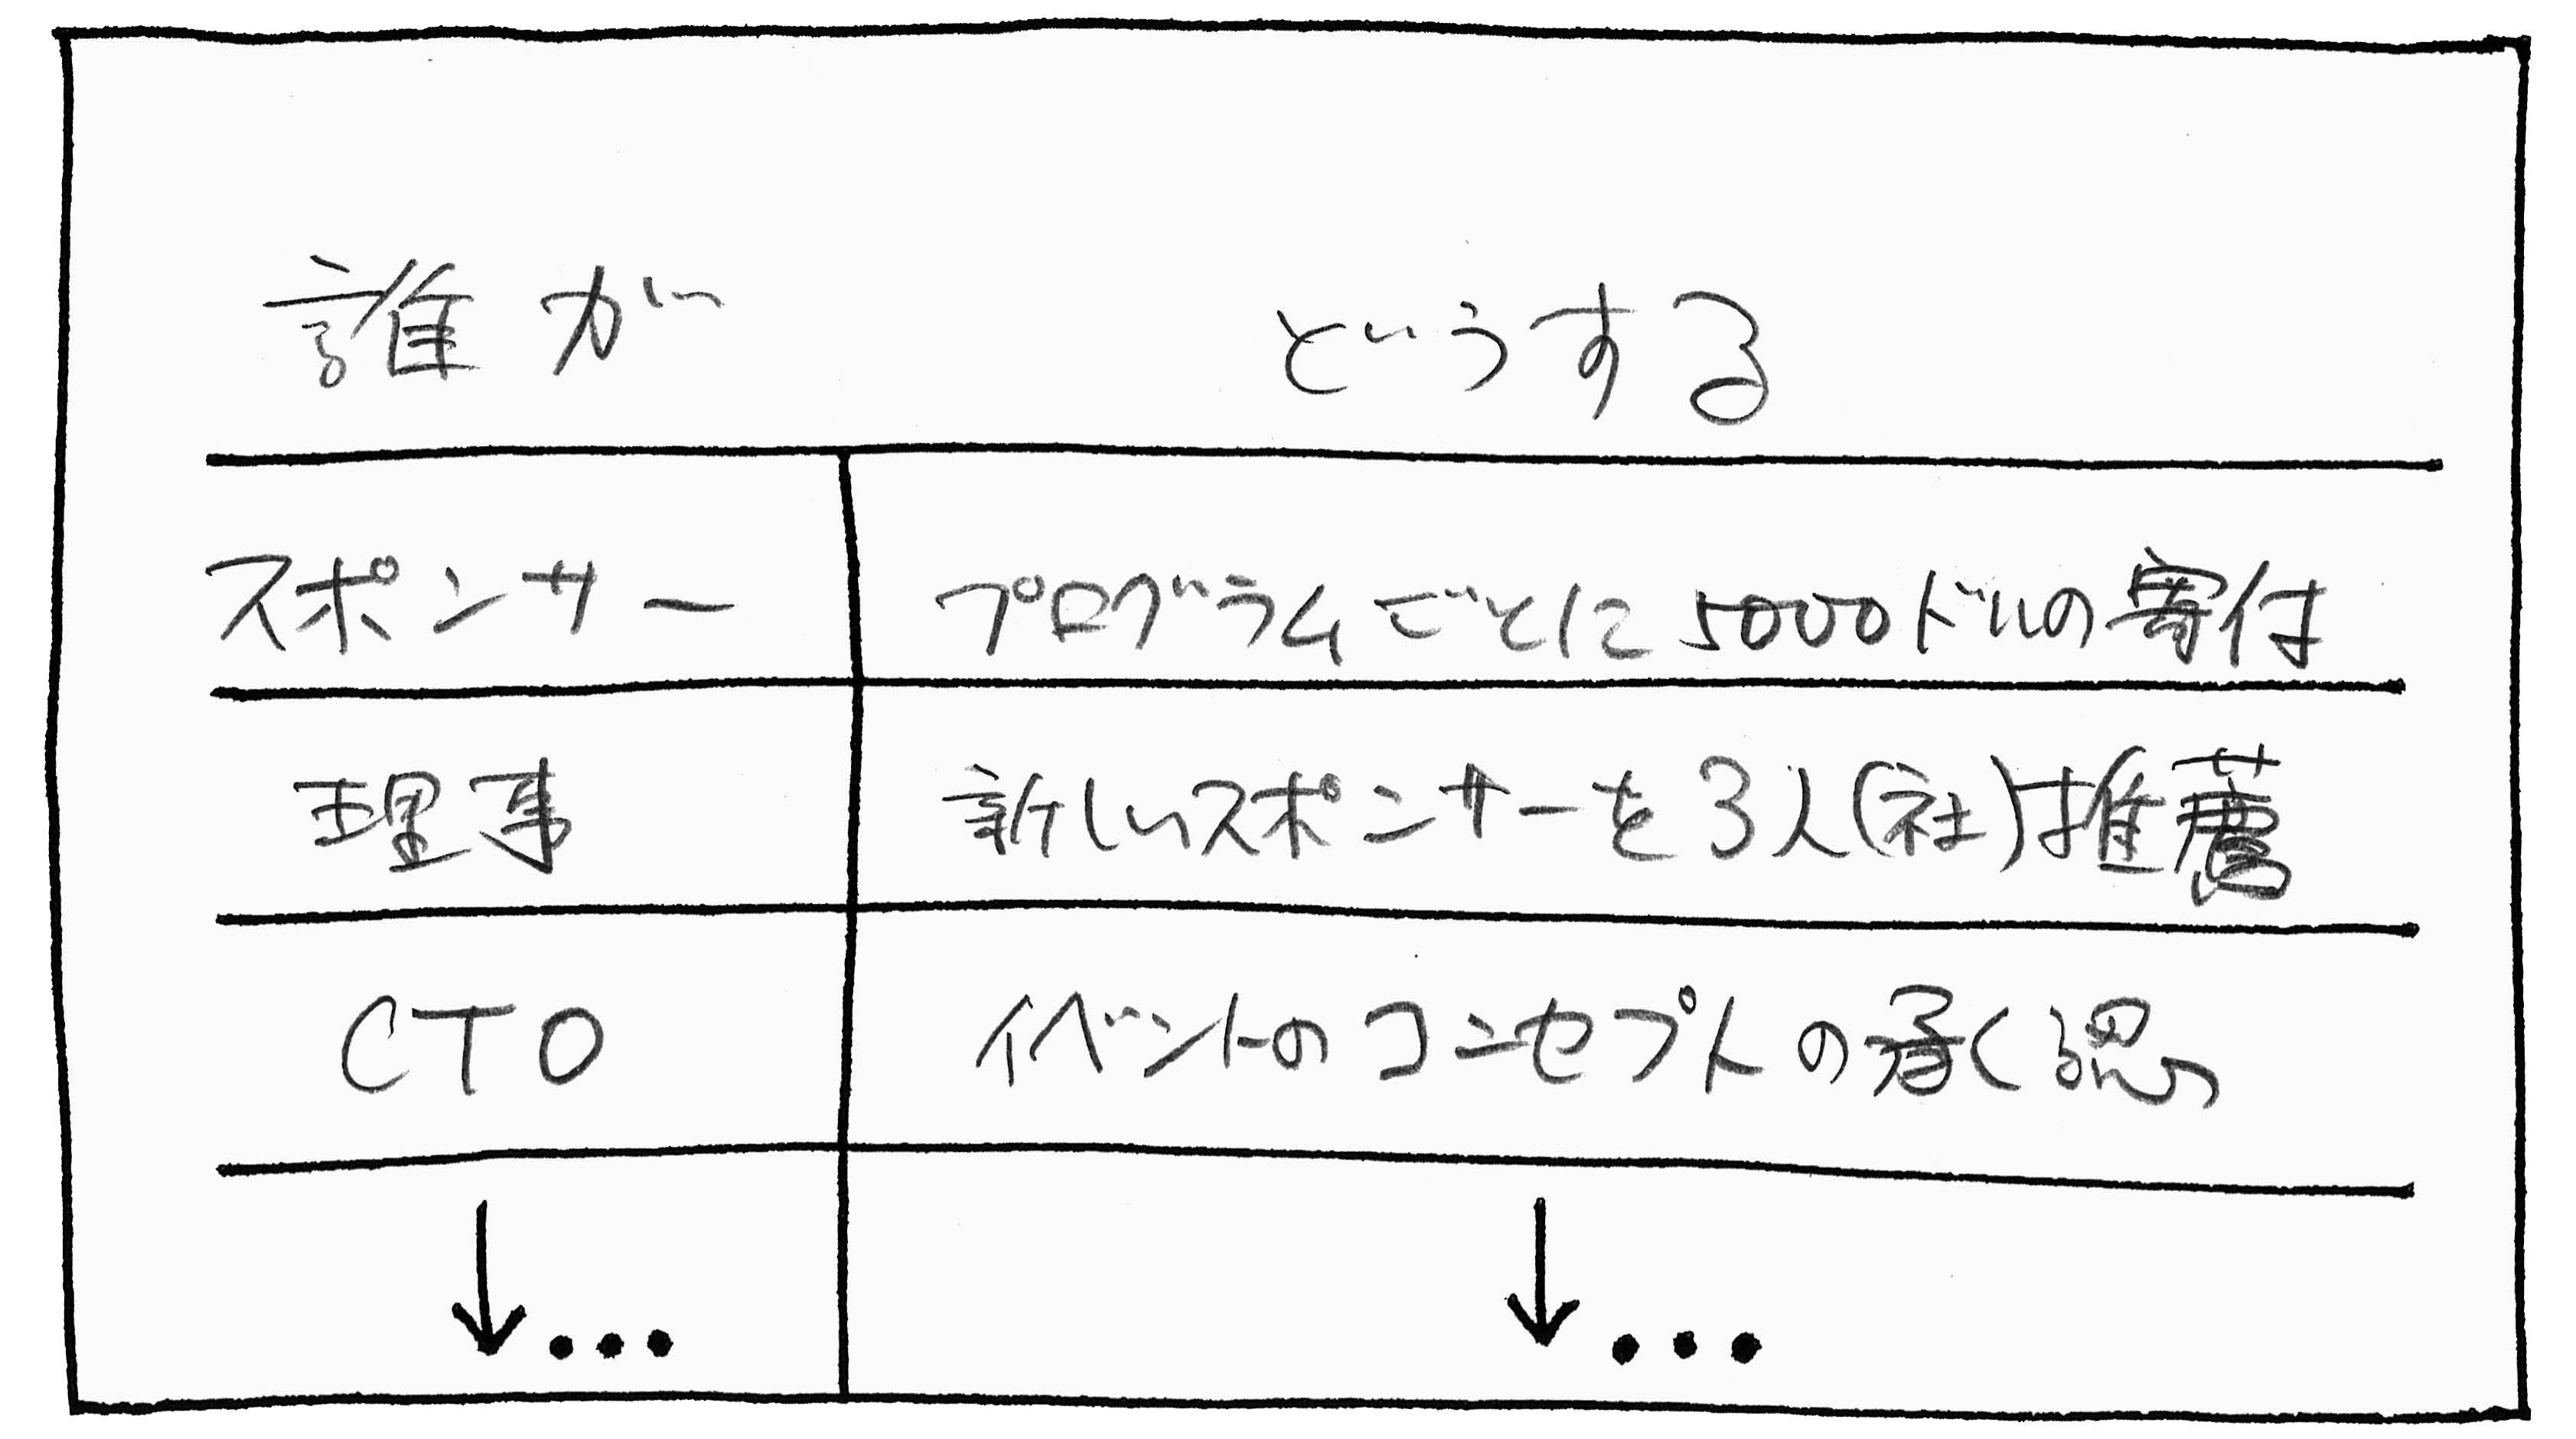 誰が どうする
スポンサー プログラムごとに5000ドルの寄付
理事 新しいスポンサーを3人(社)推薦
CTO イベントのコンセプトの承認
↓... ↓...